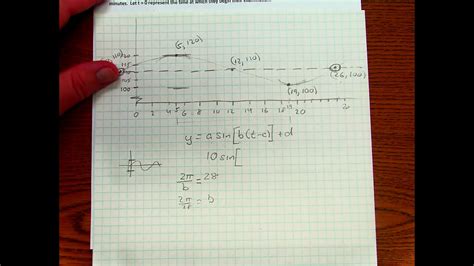 minutes. Let t = 0 represent the time at which they begin their examination.
(5, 120)
110)
120
115
(12, 110)
(26, 100)
105
100
(19, 100)
0 2 4 5 6 8 10 12 14 16 18 19 20
y = a sin[b(t-c)] + d
10 sin[
2π/b = 28
2π/28 = b